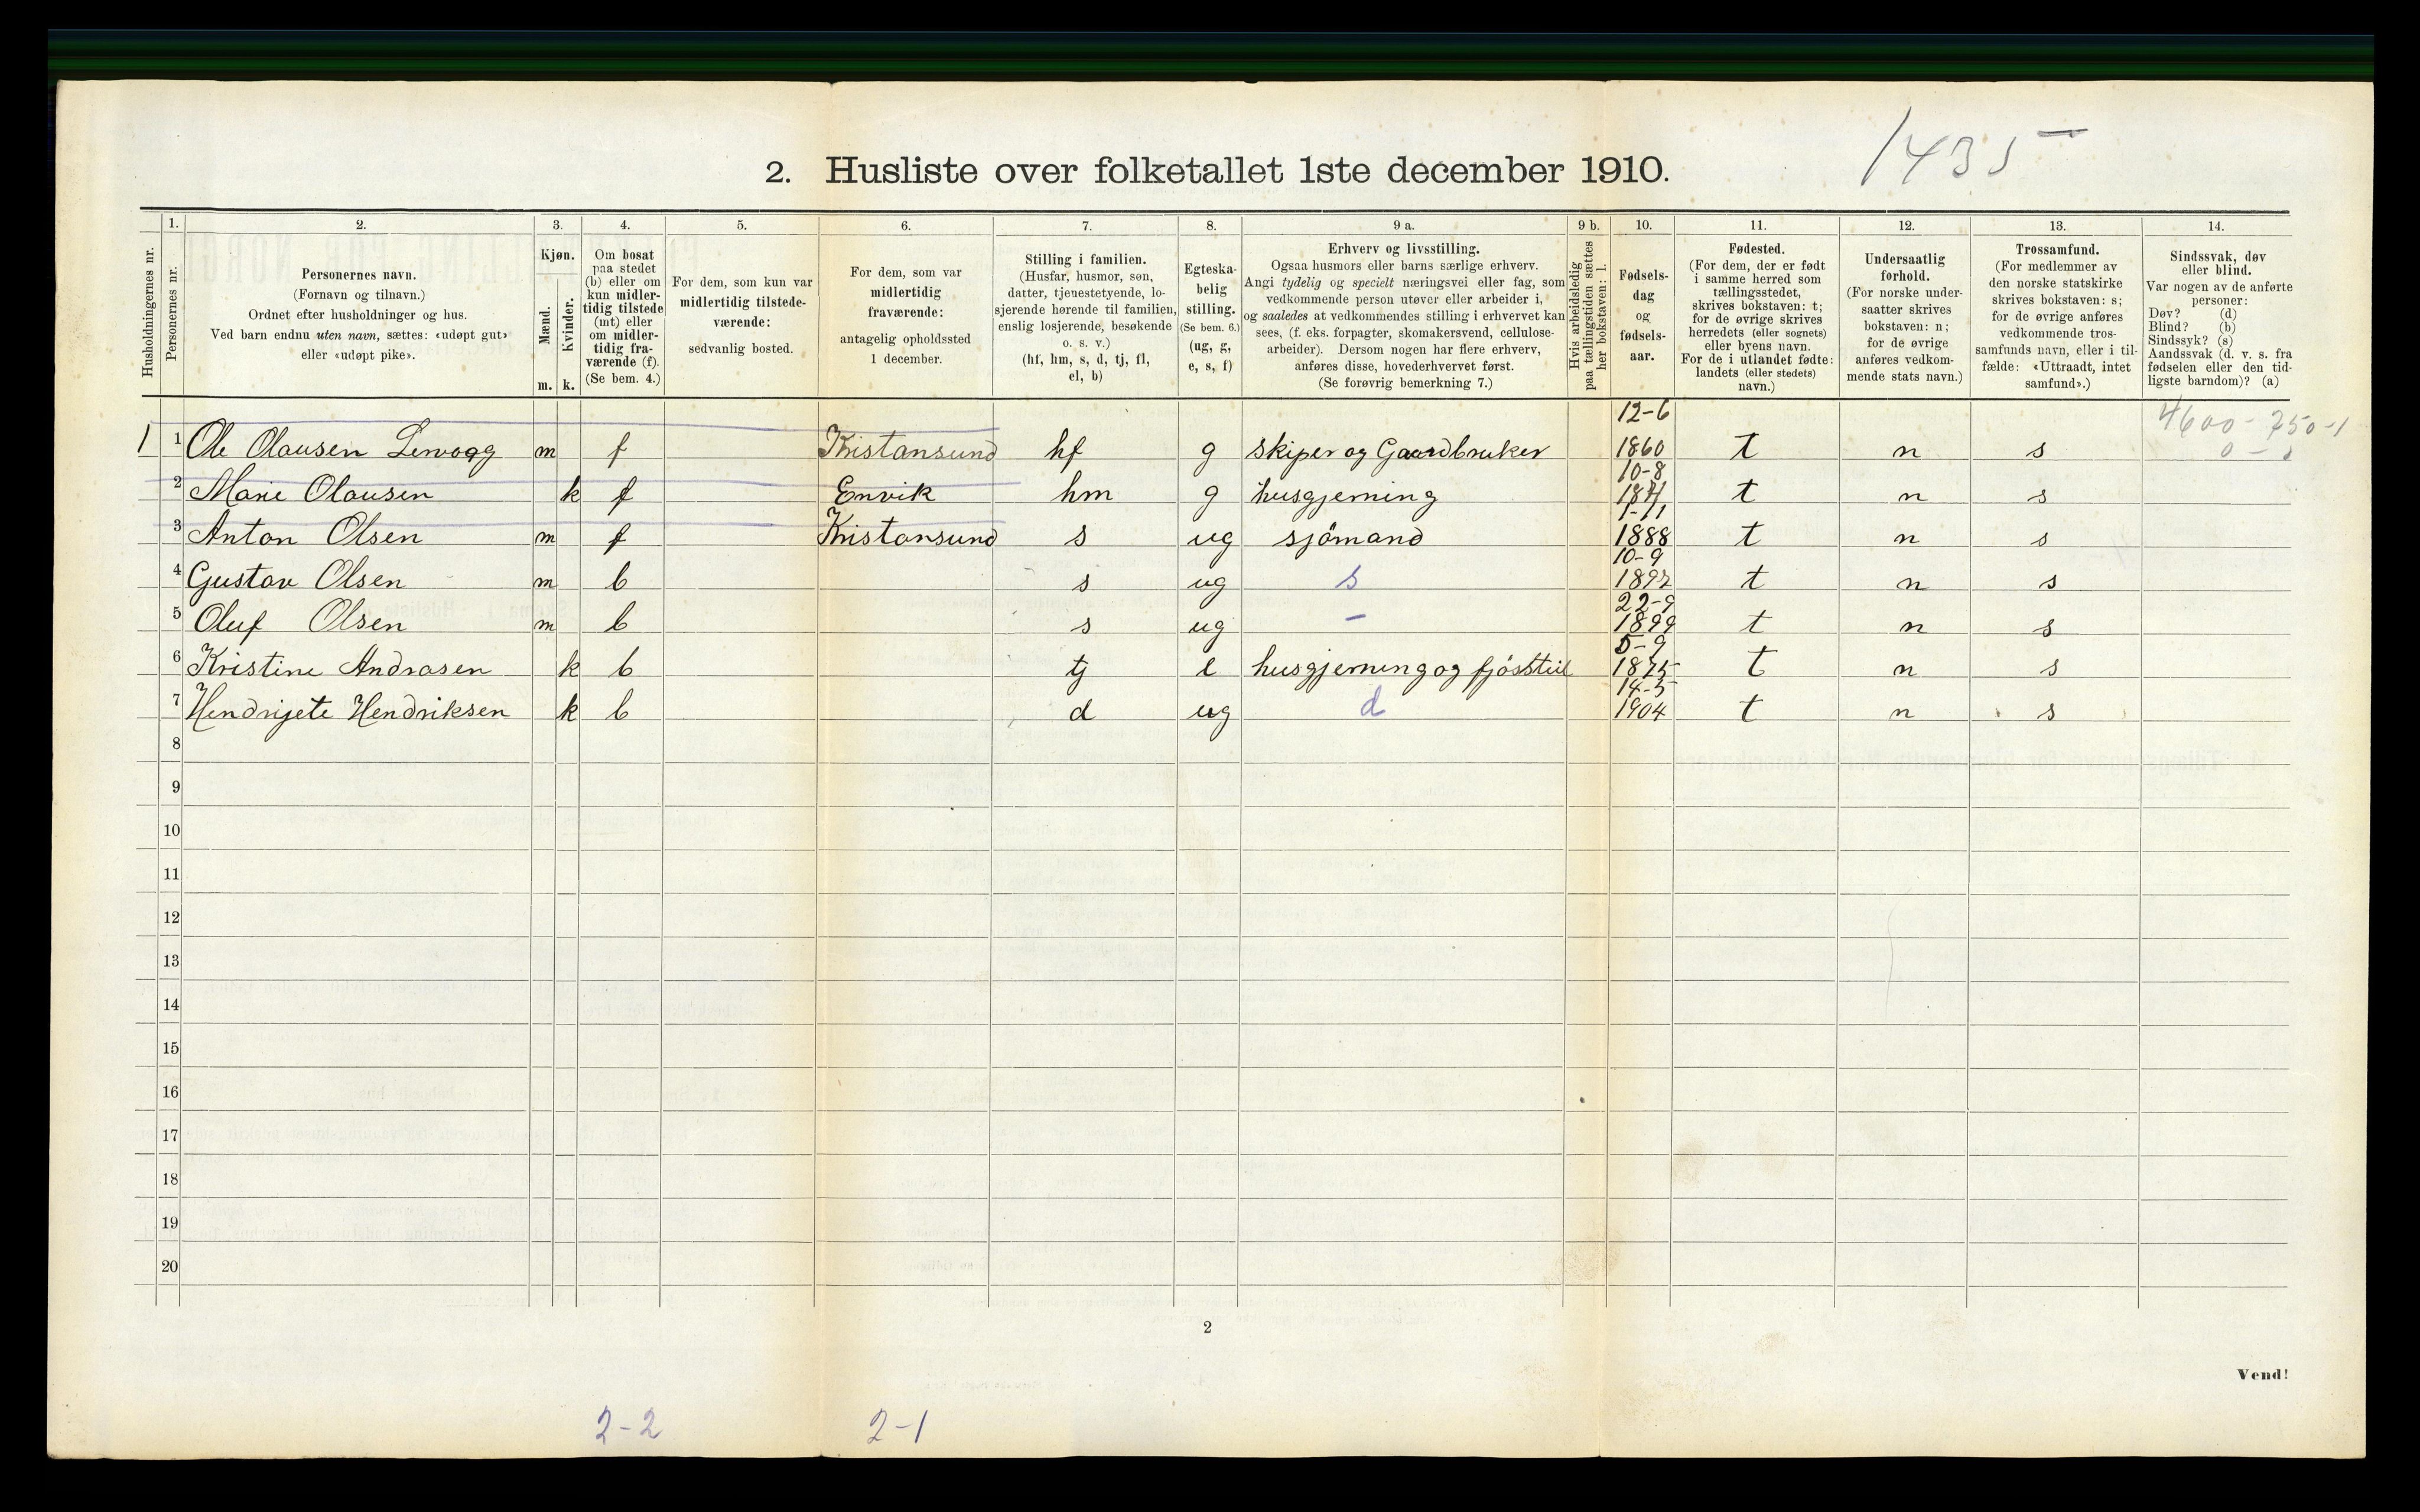 1435
2. Husliste over folketallet 1ste december 1910.
Husholdningernes nr.
1. Personernes nr.
2. Personernes navn.
(Fornavn og tilnavn.)
Ordnet efter husholdninger og hus.
Ved barn endnu uten navn, sættes: «udøpt gut»
eller «udøpt pike».
3. Kjøn.
Mænd. m.
Kvinder. k.
4. Om bosat
paa stedet
(b) eller om
kun midler-
tidig tilstede
(mt) eller
om midler-
tidig fra-
værende (f).
(Se bem. 4.)
5. For dem, som kun var
midlertidig tilstede-
værende:
sedvanlig bosted.
6. For dem, som var
midlertidig
fraværende:
antagelig opholdssted
1 december.
7. Stilling i familien.
(Husfar, husmor, søn,
datter, tjenestetyende, lo-
sjerende hørende til familien,
enslig losjerende, besøkende
o. s. v.)
(hf, hm, s, d, tj, fl,
el, b)
8. Egteska-
belig
stilling.
(Se bem. 6.)
(ug, g,
e, s, f)
9 a. Erhverv og livsstilling.
Ogsaa husmors eller barns særlige erhverv.
Angi tydelig og specielt næringsvei eller fag, som
vedkommende person utøver eller arbeider i,
og saaledes at vedkommendes stilling i erhvervet kan
sees, (f. eks. forpagter, skomakersvend, cellulose-
arbeider). Dersom nogen har flere erhverv,
anføres disse, hovederhvervet først.
(Se forøvrig bemerkning 7.)
9 b. Hvis arbeidsledig
paa tællingstiden sættes
her bokstaven: l.
10. Fødsels-
dag
og
fødsels-
aar.
11. Fødested.
(For dem, der er født
i samme herred som
tællingsstedet,
skrives bokstaven: t;
for de øvrige skrives
herredets (eller sognets)
eller byens navn.
For de i utlandet fødte:
landets (eller stedets)
navn.)
12. Undersaatlig
forhold.
(For norske under-
saatter skrives
bokstaven: n;
for de øvrige
anføres vedkom-
mende stats navn.)
13. Trossamfund.
(For medlemmer av
den norske statskirke
skrives bokstaven: s;
for de øvrige anføres
vedkommende tros-
samfunds navn, eller i til-
fælde: «Uttraadt, intet
samfund».)
14. Sindssvak, døv
eller blind.
Var nogen av de anførte
personer:
Døv? (d)
Blind? (b)
Sindssyk? (s)
Aandssvak (d. v. s. fra
fødselen eller den tid-
ligste barndom)? (a)
4600 - 750-1
1 1 Ole Olausen Lervaag m f Kristansund hf g skiper og Gaardbruker 12-6 1860 t n s
2 Marie Olausen k f Envik hm g husgjerning 10-8 1871 t n s
3 Anton Olsen m f Kristansund s ug sjömand 1-11 1888 t n s
4 Gustav Olsen m b s ug s 10-9 1897 t n s
5 Oluf Olsen m b s ug - 22-9 1899 t n s
6 Kristine Andrasen k b tj e husgjerning og fjösstel 5-9 1875 t n s
7 Hendrijete Hendriksen k b d ug d 14-5 1904 t n s
8
9
10
11
12
13
14
15
16
17
18
19
20
2
Vend!
2-2 2-1